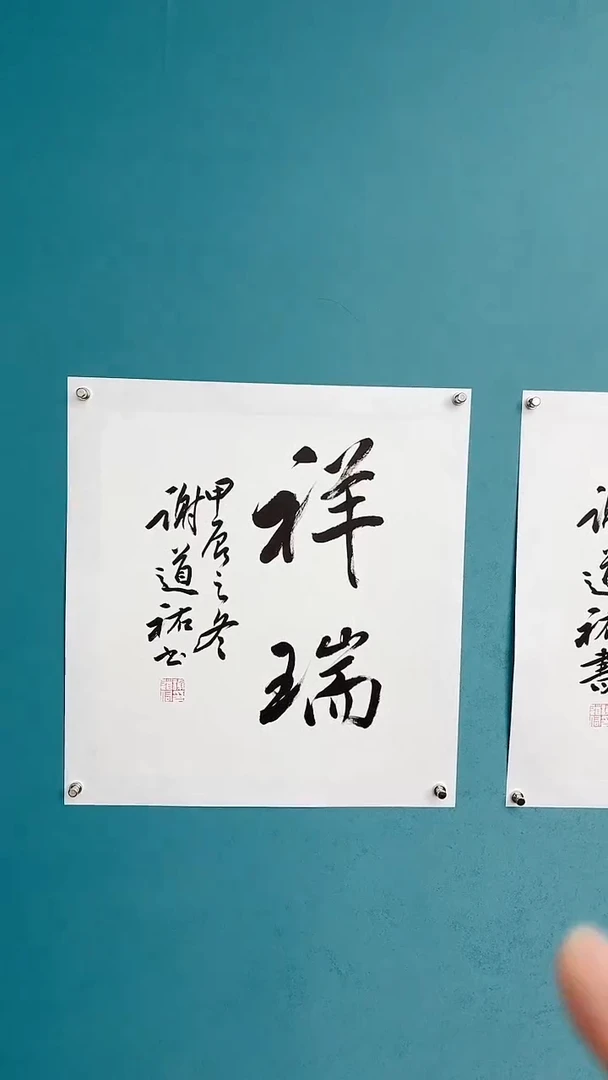 祥瑞
甲辰之冬
谢道祐书
谢道祐書